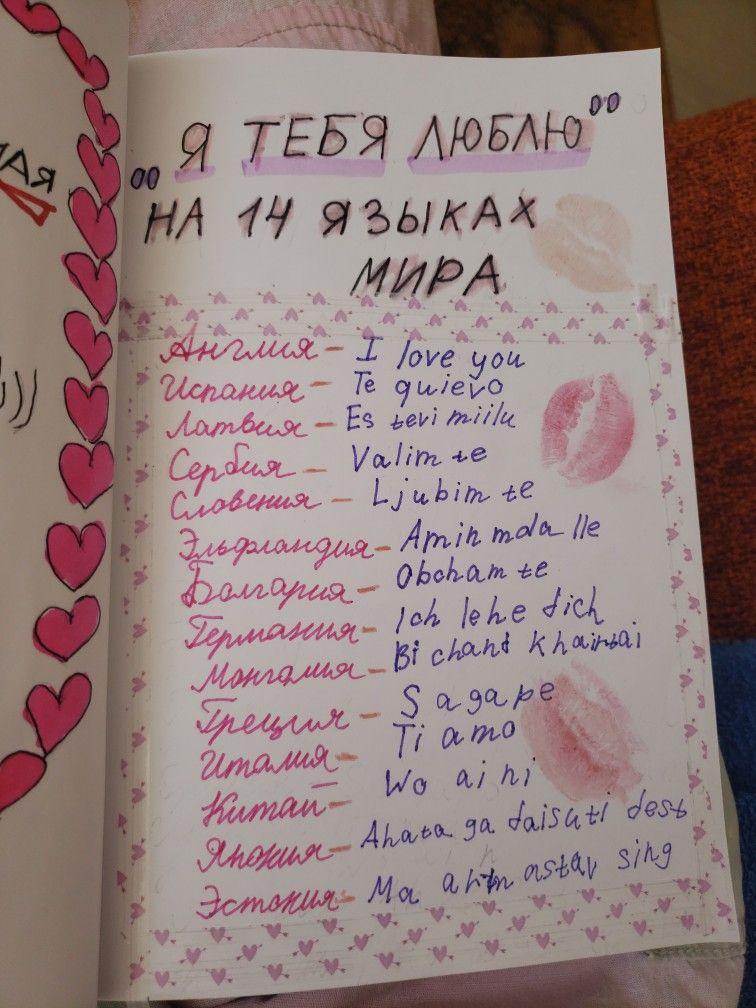 "Я ТЕБЯ ЛЮБЛЮ"
НА 14 ЯЗЫКАХ
МИРА
Англия - I love you
Испания - Te quievo
Латвия - Es tevi miilu
Сербия - Valim te
Словения - Ljubim te
Эльфландия - Amin mda lle
Болгария - Obcham te
Германия - Ich lehe dich
Монголия - Bi chamd khairtai
Греция - S agape
Италия - Ti amo
Китай - Wo ai ni
Япония - Ahata ga daisuti dest
Эстония - Ma armastav sing